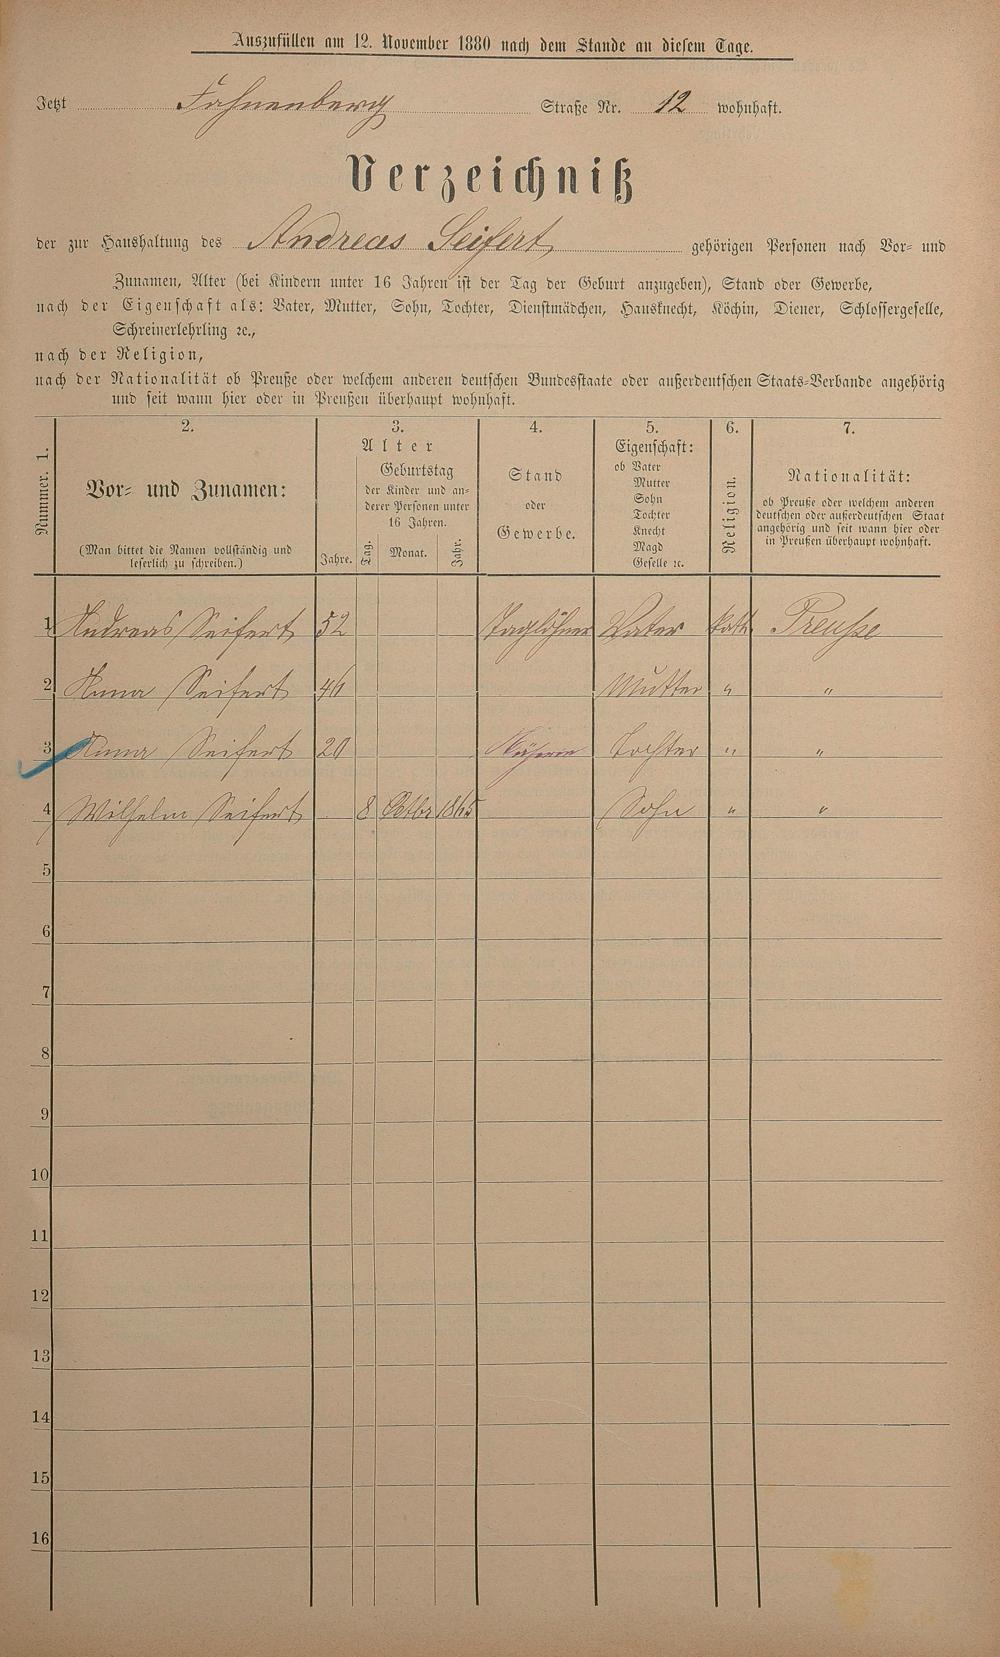 Auszufüllen am 12. November 1880 nach dem Stande an diesem Tage.
Jetzt Fahnenberg Straße Nr. 12 wohnhaft.
Verzeichniß
der zur Haushaltung des Andreas Seifert gehörigen Personen nach Vor- und
Zunamen, Alter (bei Kindern unter 16 Jahren ist der Tag der Geburt anzugeben), Stand oder Gewerbe,
nach der Eigenschaft als: Vater, Mutter, Sohn, Tochter, Dienstmädchen, Hausknecht, Köchin, Diener, Schlossergeselle,
Schreinerlehrling ꝛc.,
nach der Religion,
nach der Nationalität ob Preuße oder welchem anderen deutschen Bundesstaate oder außerdeutschen Staats-Verbande angehörig
und seit wann hier oder in Preußen überhaupt wohnhaft.
Nummer. 1.
2.
Vor- und Zunamen:
(Man bittet die Namen vollständig und
leserlich zu schreiben.)
3.
Alter
Jahre.
Geburtstag
der Kinder und an-
derer Personen unter
16 Jahren.
Tag. Monat. Jahr.
4.
Stand
oder
Gewerbe.
5.
Eigenschaft:
ob Vater
Mutter
Sohn
Tochter
Knecht
Magd
Geselle ꝛc.
6.
Religion.
7.
Nationalität:
ob Preuße oder welchem anderen
deutschen oder außerdeutschen Staat
angehörig und seit wann hier oder
in Preußen überhaupt wohnhaft.
1 Andreas Seifert 52 Taglöhner Vater kath. Preusse
2 Anna Seifert 46 Mutter " "
3 Anna Seifert 20 Näherin Tochter " "
4 Wilhelm Seifert 8 Octbr 1865 Sohn " "
5
6
7
8
9
10
11
12
13
14
15
16